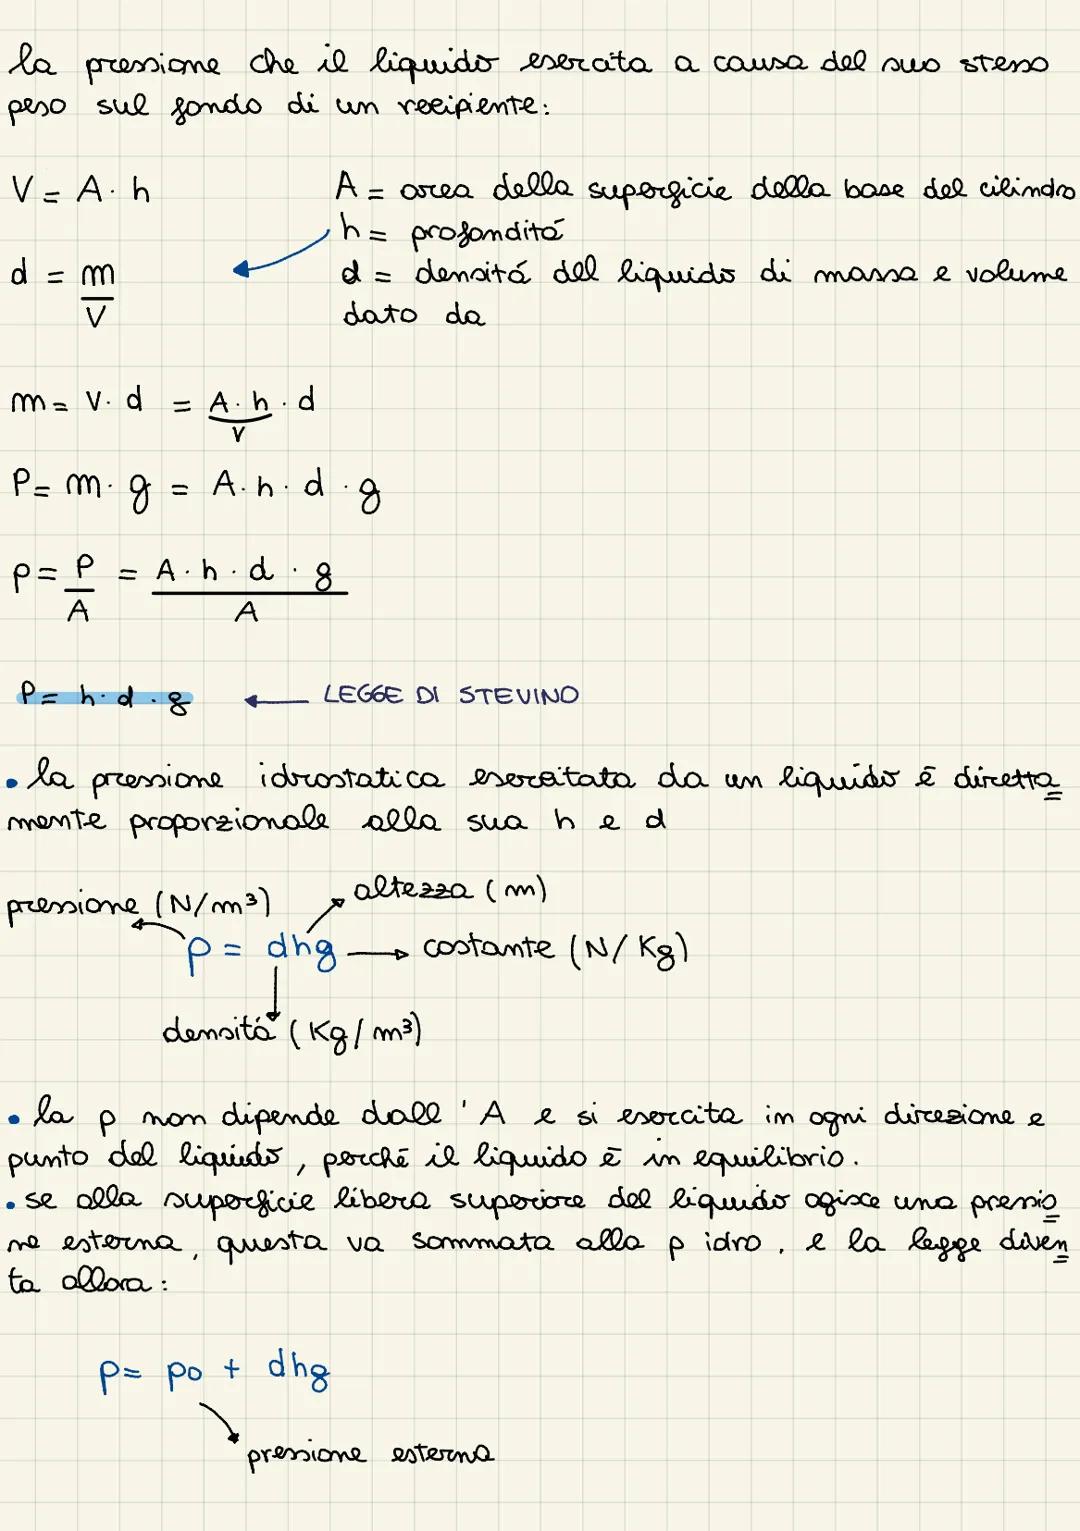 la pressione che il liquido esercita a causa del suo stesso
peso sul fondo di un recipiente:
V = A · h
A = area della superficie della base del cilindro
h = profondità
d = m/V
d = densità del liquido di massa e volume
dato da
m = V · d = A · h · d
V
P = m · g = A · h · d · g
p = P/A = A · h · d · g / A
P = h · d · g ← LEGGE DI STEVINO
• la pressione idrostatica esercitata da un liquido è diretta
mente proporzionale alla sua h e d
altezza (m)
pressione (N/m³)
p = dhg → costante (N/Kg)
densità (Kg/m³)
• la p non dipende dall'A e si esercita in ogni direzione e
punto del liquido, perché il liquido è in equilibrio.
• se alla superficie libera superiore del liquido agisce una pressio
ne esterna, questa va sommata alla p idro, e la legge diven
ta allora:
p = po + dhg
pressione esterna